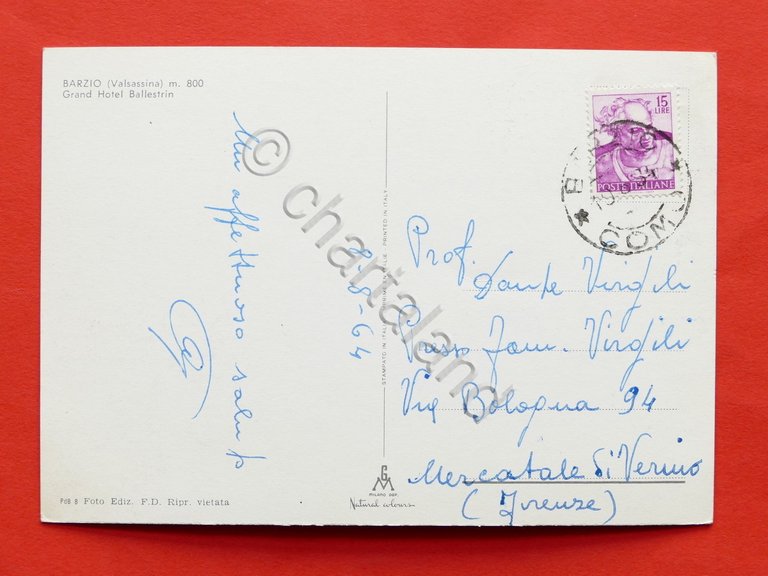 BARZIO (Valsassina) m. 800
Grand Hotel Ballestrin
15
LIRE
POSTE ITALIANE
BARZIO
COMO
Un affettuoso saluto
7-8-64
Prof. Dante Virgili
Press Fam. Virgili
Via Bologna 94
Mercatale di Vernio
(Firenze)
© chartaland
PRINTED IN ITALY
STAMPATO IN ITALIA
PdB 8 Foto Ediz. F.D. Ripr. vietata
GM
MILANO DEP.
Natural colours